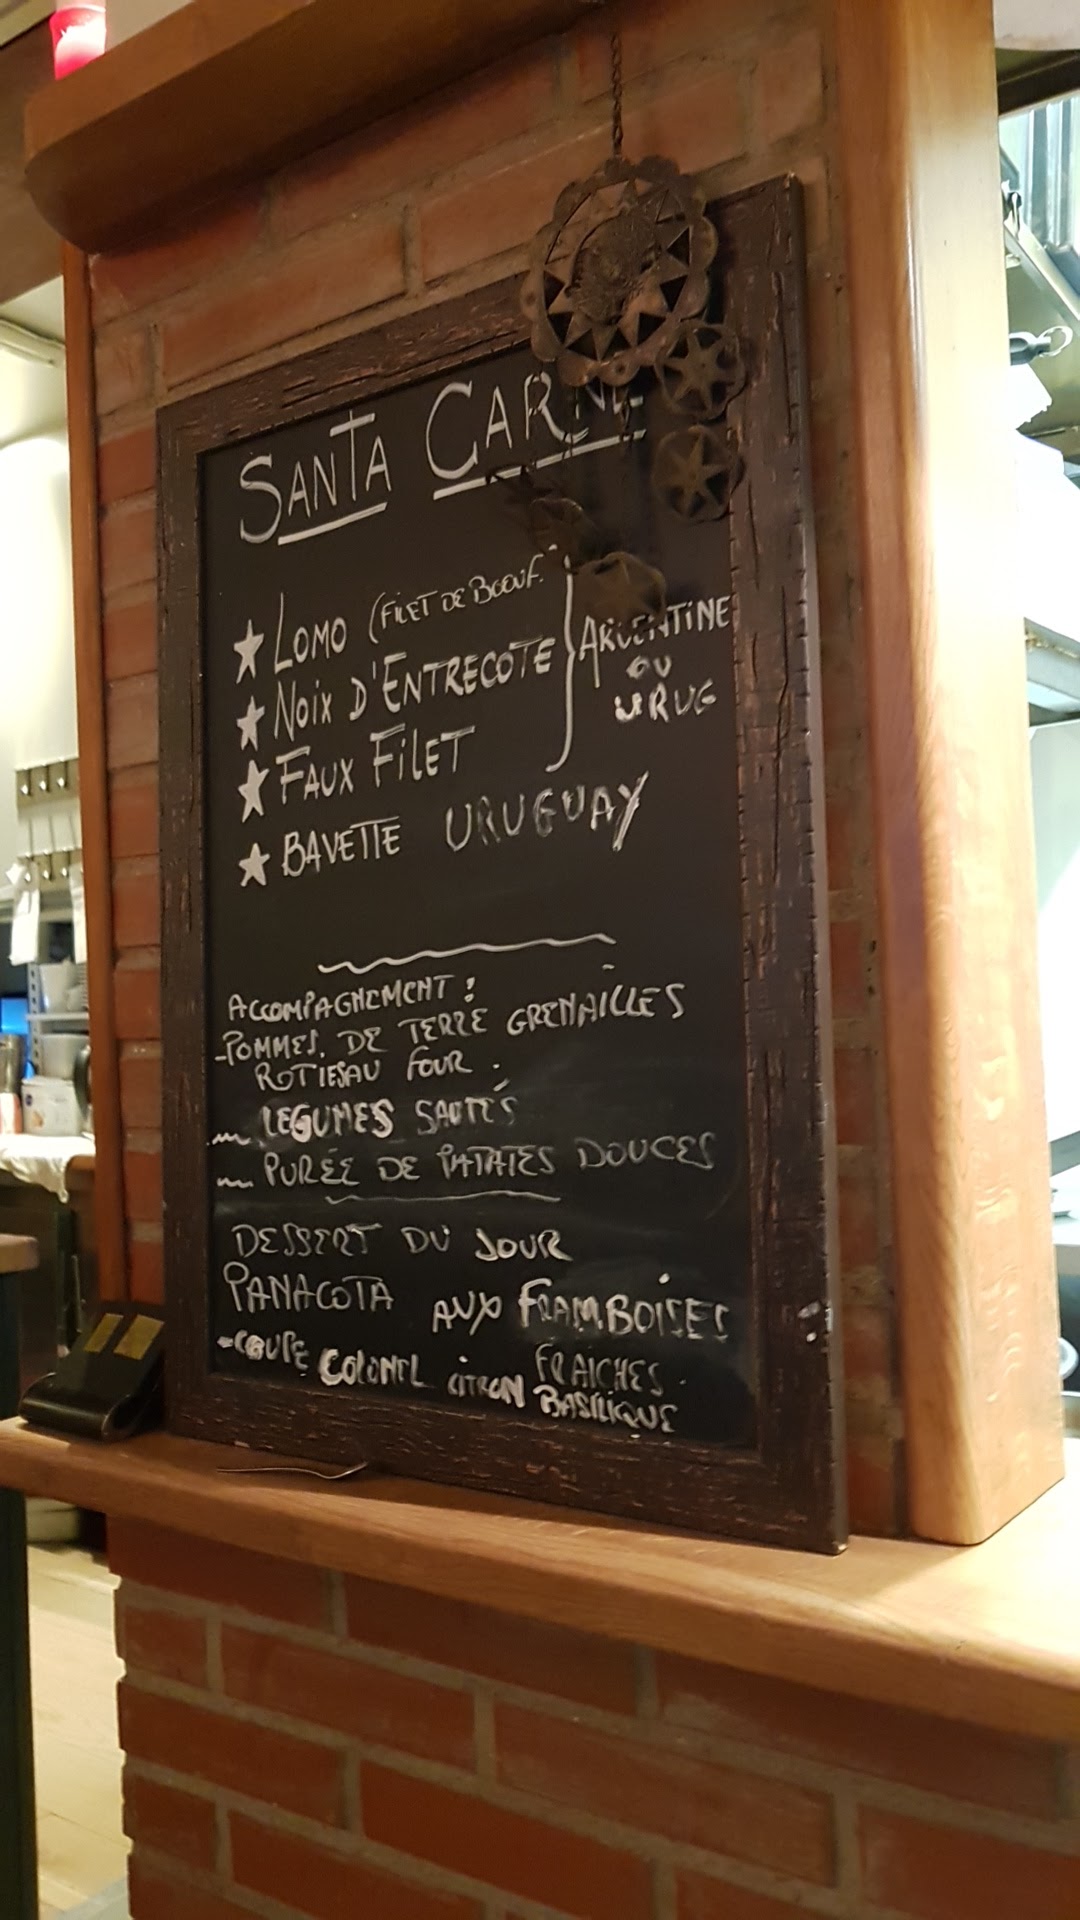 SANTA CARNE
★ LOMO (FILET DE BOEUF.
★ NOIX D'ENTRECOTE
★ FAUX FILET
ARGENTINE
OU
URUG
★ BAVETTE URUGUAY
ACCOMPAGNEMENT :
-POMMES. DE TERRE GRENAILLES
ROTIES AU FOUR.
LEGUMES SAUTÉS
PURÉE DE PATATES DOUCES
DESSERT DU JOUR
PANACOTA AUX FRAMBOISES
FRAICHES.
-COUPE COLONEL CITRON BASILIQUE